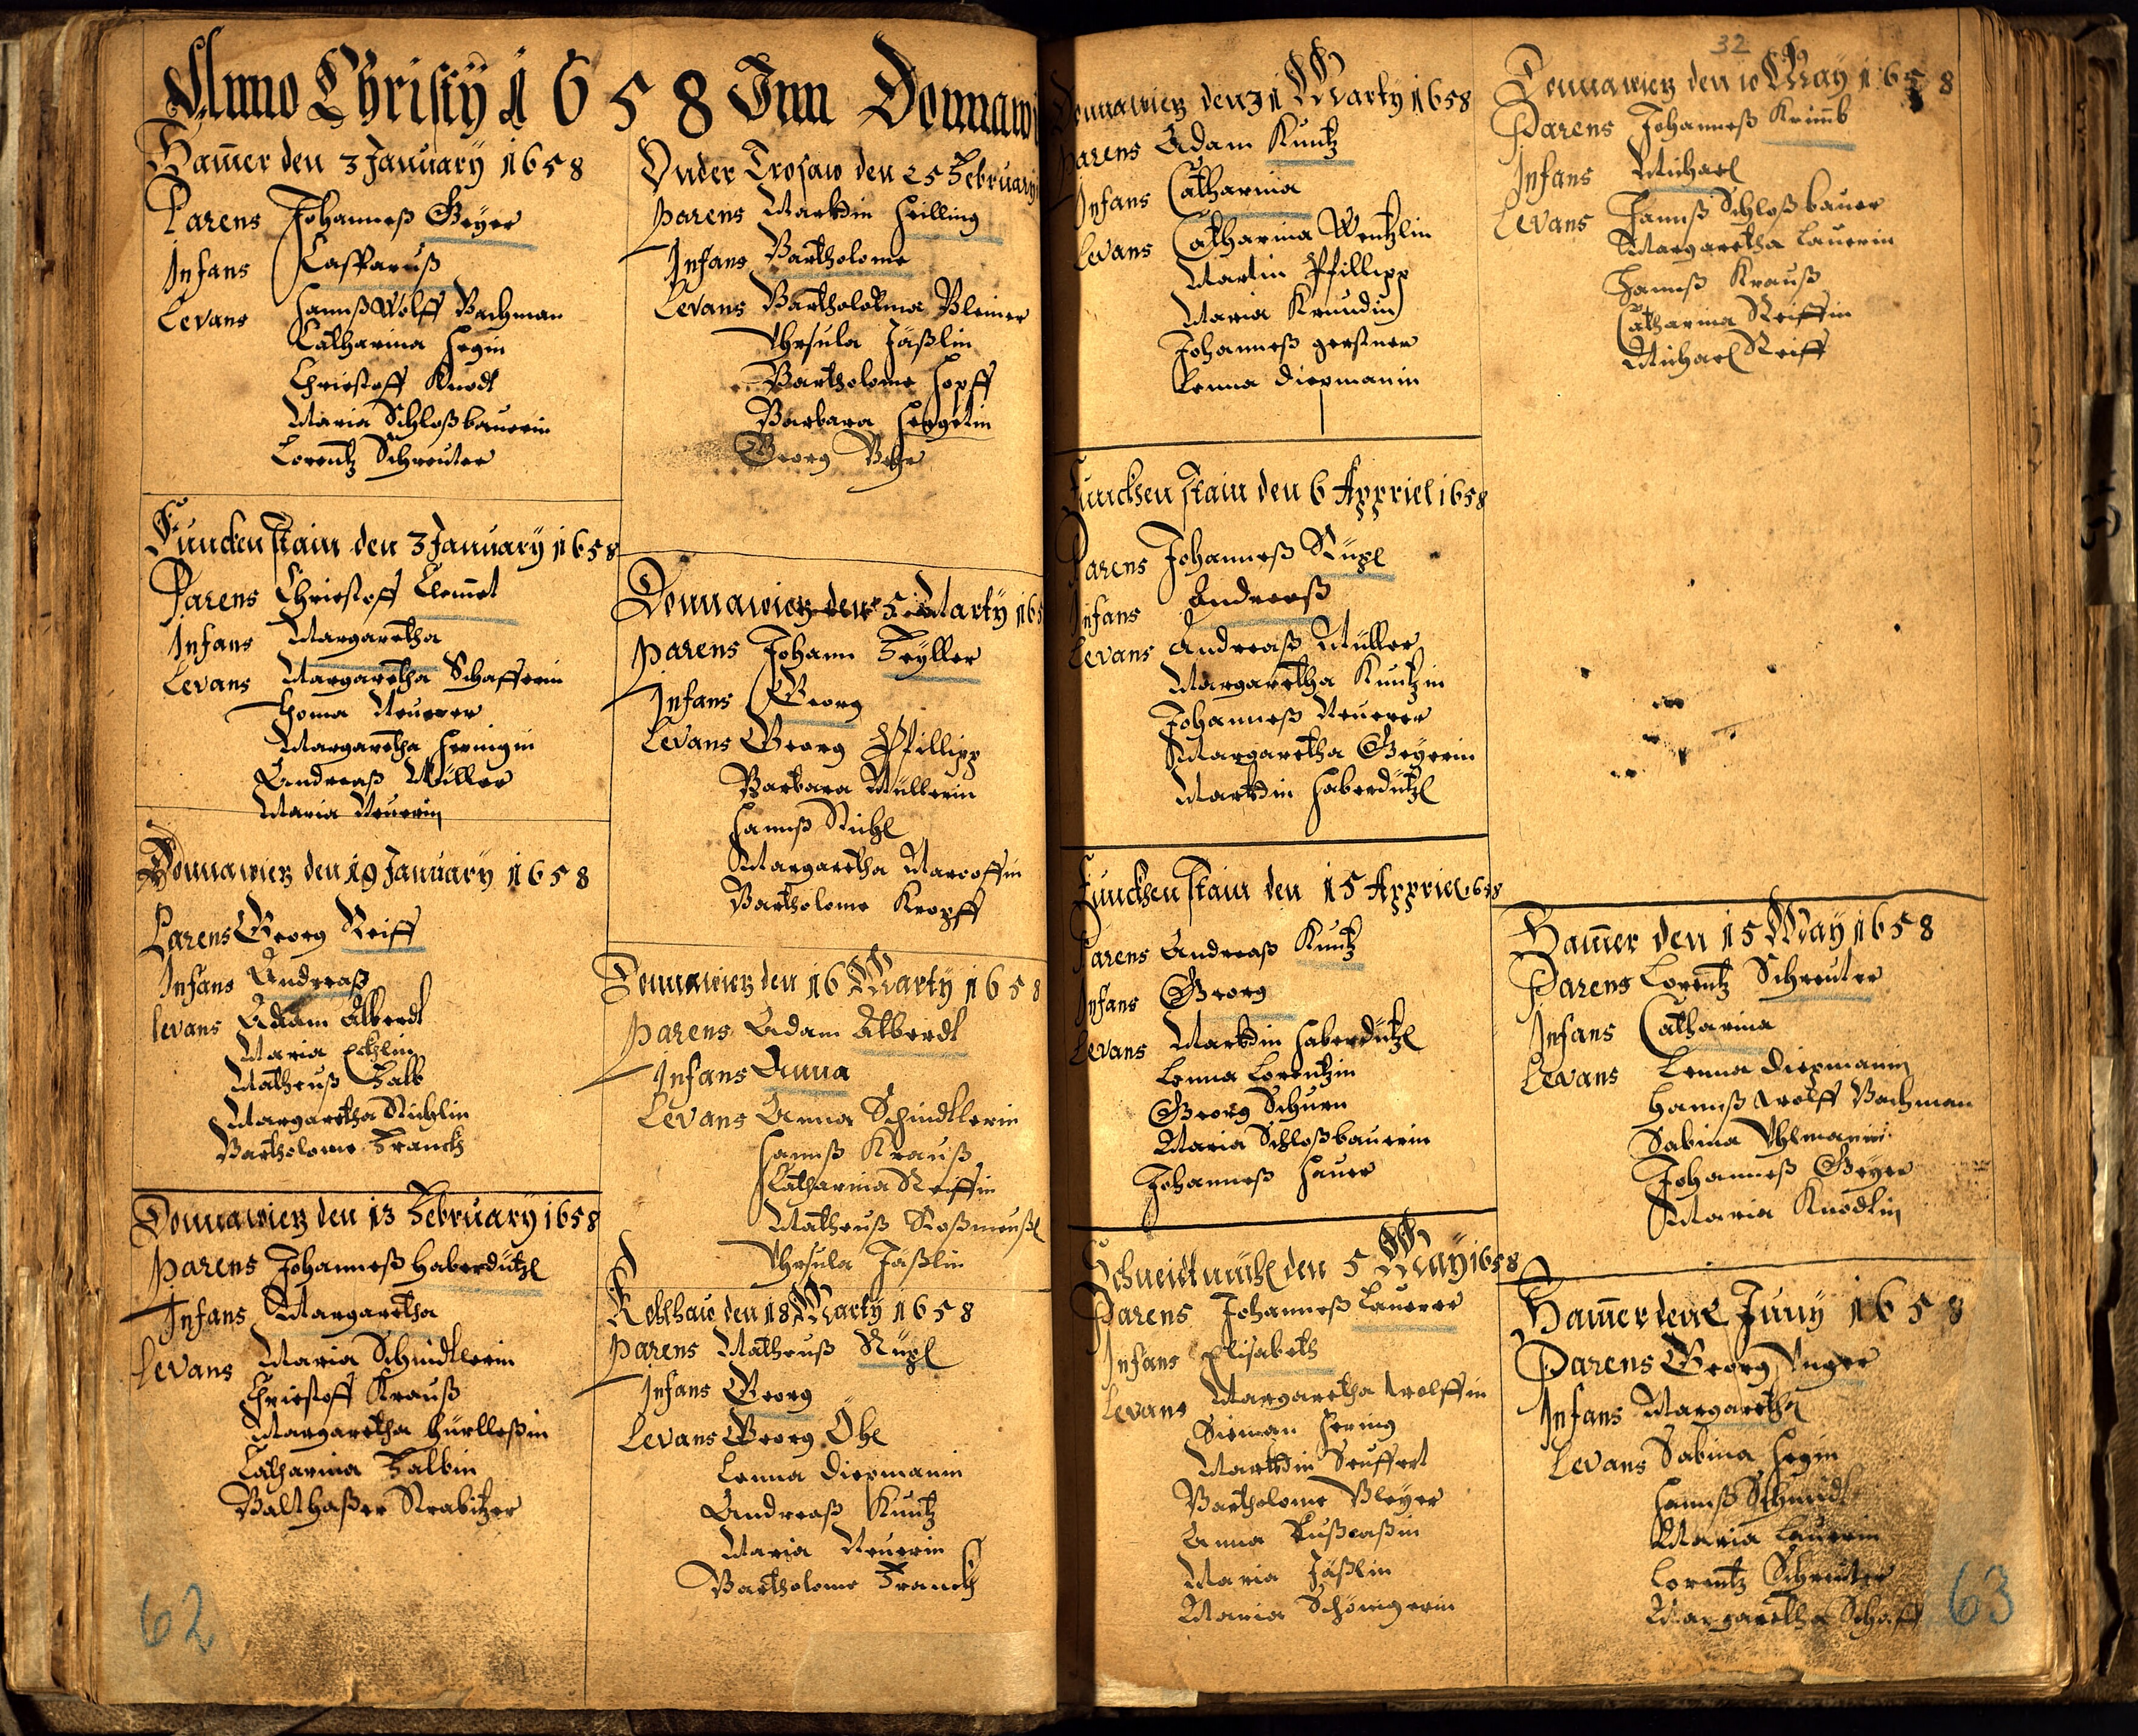 Anno Christÿ 1658 Inn Donnaw
Ham̃er den 3 January 1658
Parens Johanneß Geÿer
Infans Casparuß
Levans Hannß Wolff Bachman
Catharina Hegin
Christoff Knodt
Maria Schloßbauerin
Lorentz Schreuter
Funcken stain den 3 January 1658
Parens Christoff Clem̃et
Infans Margaretha
Levans Margaretha Schafferin
Thoma Neuerer
Margaretha Heringin
Andreaß Müller
Maria Neuerin
Donnawietz den 19 January 1658
Parens Georg Reiff
Infans Andreaß
Levans Adam Alberdt
Maria
Matheuß Falb
Margaretha Richlin
Bartholome Franck
Donnawietz den 13 February 1658
Parens Johanneß Haberdützl
Infans Margaretha
Levans Maria Schindtlerin
Christoff Krauß
Margaretha Hürlleßin
Catharina Falbin
Balthaßer Strabitzer
62
Vnder Trosaw den 25 February
Parens Marthin Heilling
Infans Bartholome
Levans Bartholoma Bleiner
Vhrsula Jäßlin
Bartholome Hopff
Barbara Hergetin
Georg
Donnawietz den 5 Marty 165
Parens Johann Feÿller
Infans Georg
Levans Georg Pfillipp
Barbara Müllerin
Hannß Richl
Margaretha Marooffin
Bartholome Kropff
Donnawietz den 16 Marty 1658
Parens Adam Alberdt
Infans Anna
Levans Anna Schindtlerin
Hannß Krauß
Catharina Reiffin
Matheuß Roßmeußl
Vhrsula Jäßlin
Kohlhaw den 18 Marty 1658
Parens Matheuß Rüpl
Infans Georg
Levans Georg Öhl
Lenna Diepmanin
Andreaß Kuntz
Maria Neuerin
Bartholome Franck
Donnawietz den 31 Marty 1658
Parens Adam Kuntz
Infans Catharina
Levans Catharina Wentzlin
Martin Pfillipp
Maria
Johanneß gerstner
Lenna Diepmanin
Funckhen stain den 6 Appriel 1658
Parens Johanneß Rüpl
Infans Andreaß
Levans Andreaß Müller
Margaretha Kuntzin
Johanneß Neuerer
Margaretha Geÿerin
Marthin Haberdützl
Funckhen stain den 15 Appriel 1658
Parens Andreaß Kuntz
Infans Georg
Levans Marthin Haberdützl
Lenna Lorentzin
Georg Schurn
Maria Schloßbauerin
Johanneß Hauer
Schneidtmühl den 5 May 1658
Parens Johanneß Lauerer
Infans Elisabeth
Levans Margaretha Wolffin
Sieman Hering
Marthin Seuffert
Bartholome Bleÿer
Anna
Maria Jäßlin
Maria
32
Donnawietz den 10 May 1658
Parens Johanneß Krim̃b
Infans Michael
Levans Hannß Schloßbauer
Margaretha Lauerin
Hannß Krauß
Catharina Reiffin
Michael Reiff
Ham̃er den 15 May 1658
Parens Lorentz Schreuter
Infans Catharina
Levans Lenna Diepmanin
Hannß Wolff Bachman
Sabina Vhlmanin
Johanneß Geÿer
Maria Knodtlin
Ham̃er den 2 Juny 1658
Parens Georg Vnger
Infans Margaretha
Levans Sabina Hegin
Hannß Schmidt
Maria Lauerin
Lorentz Schreuter
Margaretha Schaff
63